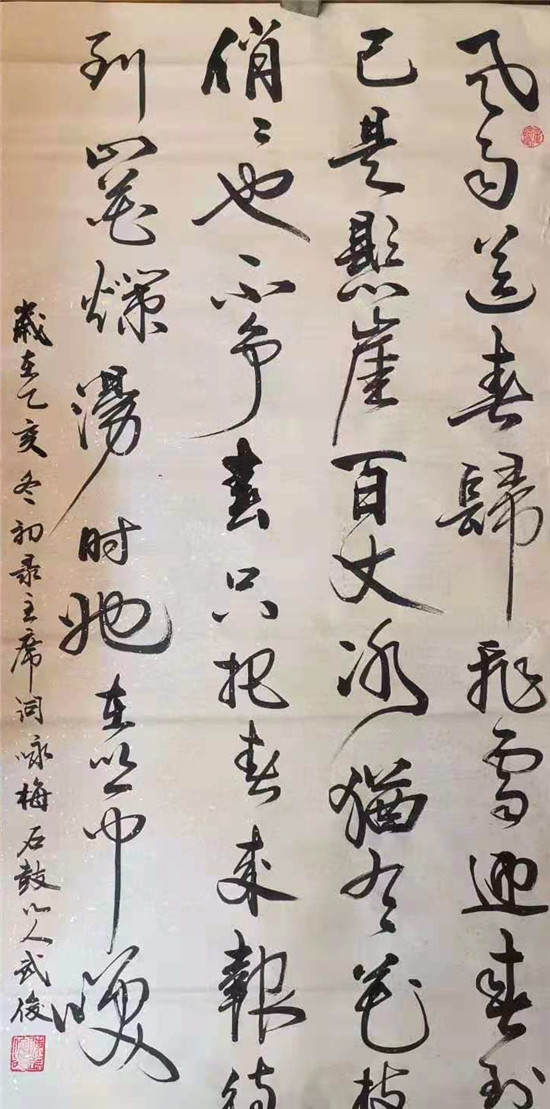 风雨送春歸飛雪迎春到
已是懸崖百丈冰猶有花枝
俏〻也不争春只把春来報待
到山花爛漫时她在丛中咲
歲在乙亥冬初录主席词咏梅石鼓山人武俊